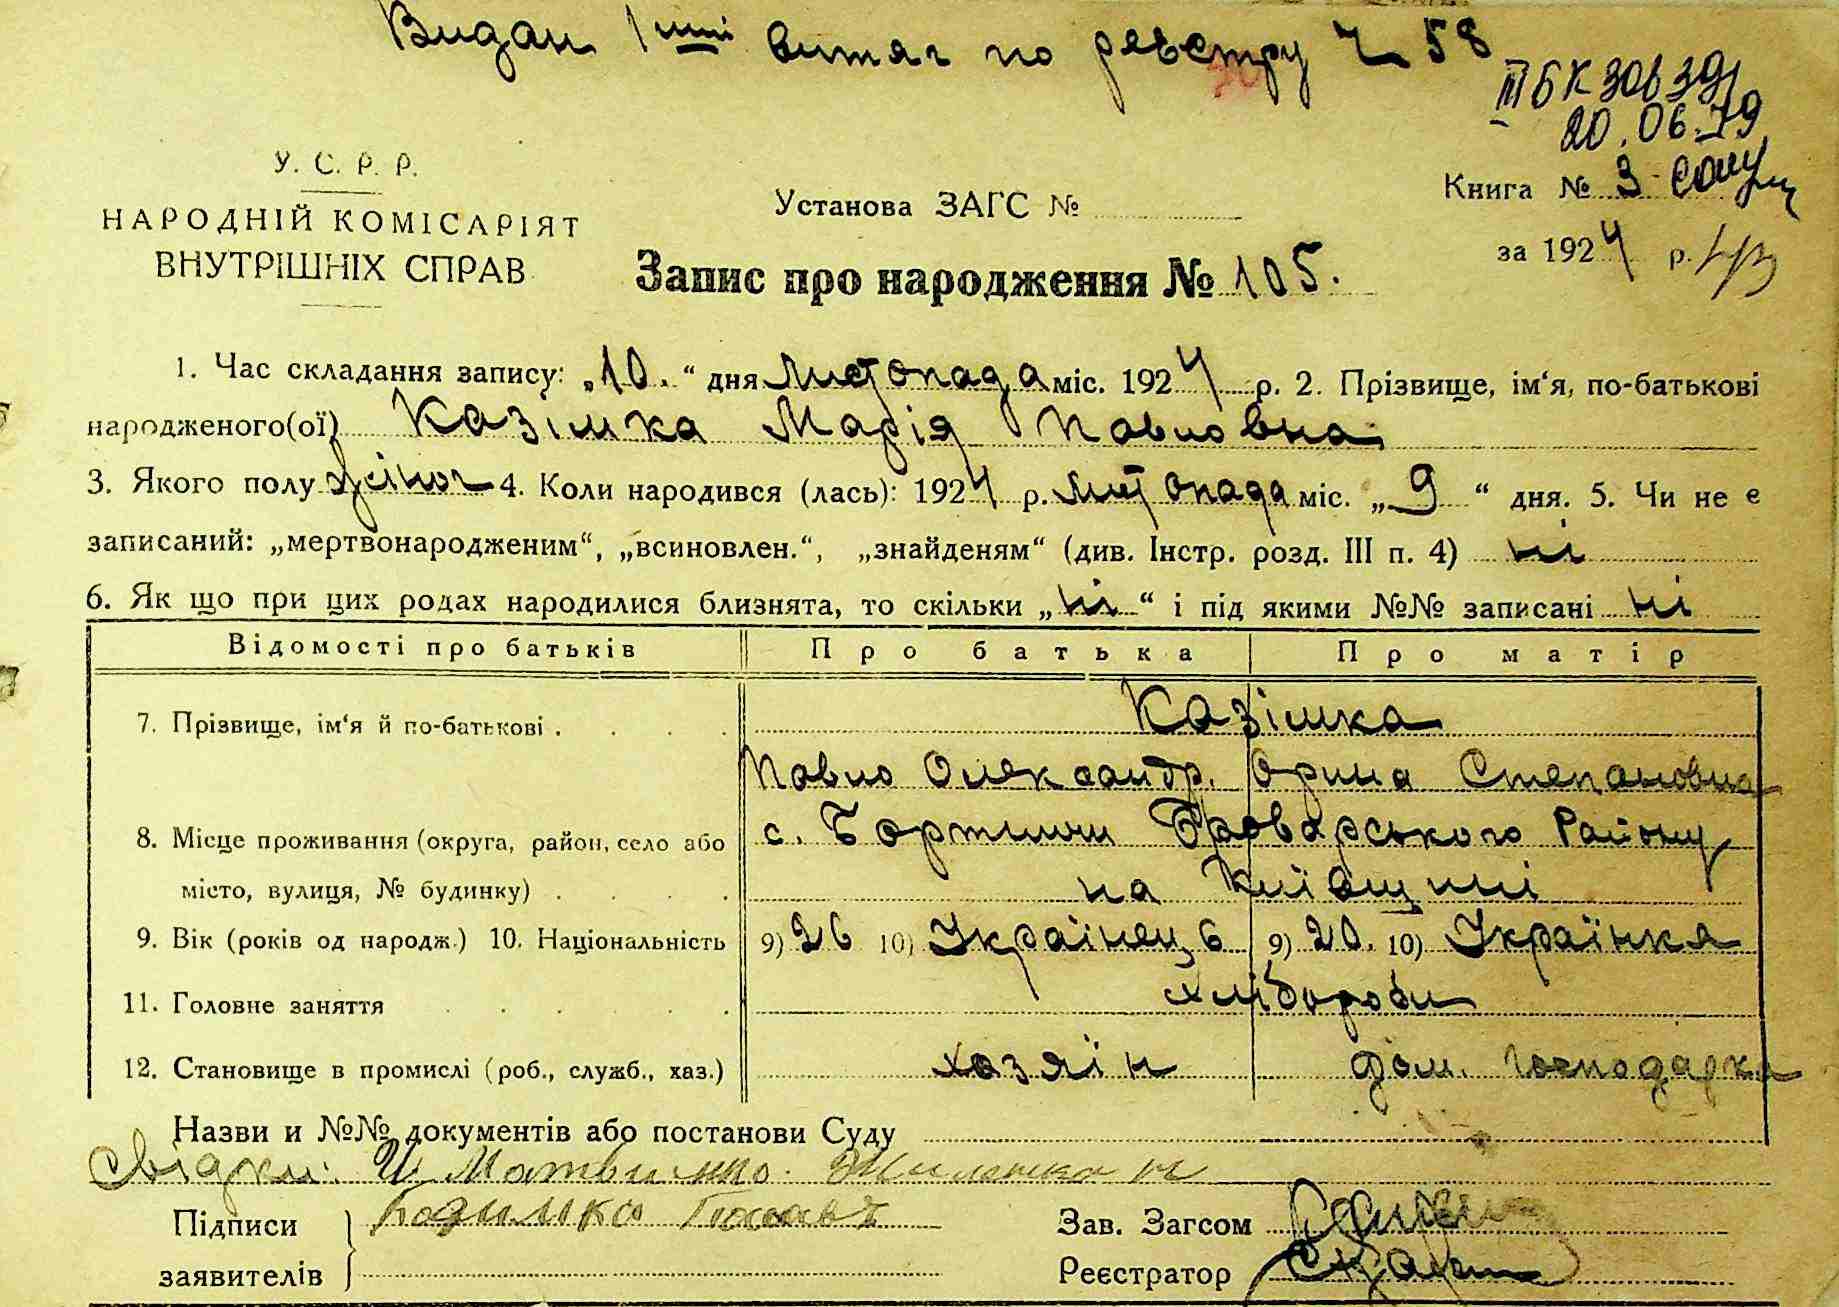 Видан 1ший витяг по реєстру Ч 58
ІІІ БК 306391
20.06.79
У. С. Р. Р.
НАРОДНІЙ КОМІСАРІЯТ
ВНУТРІШНІХ СПРАВ
Установа ЗАГС №
Книга № 3
за 1924 р.
Запис про народження № 105.
1. Час складання запису: „10.“ дня Листопада міс. 1924 р. 2. Прізвище, ім‘я, по-батькові
народженого(ої) Казімка Марія Павловна
3. Якого полу жіноч 4. Коли народився (лась): 1924 р. листопада міс. „9“ дня. 5. Чи не є
записаний: „мертвонародженим“, „всиновлен.“, „знайденям“ (див. Інстр. розд. III п. 4) ні
6. Як що при цих родах народилися близнята, то скільки „ні“ і під якими №№ записані ні
Відомості про батьків Про батька Про матір
7. Прізвище, ім‘я й по-батькові . . . . Казімка
Павло Олександр. Орина Степановна
8. Місце проживання (округа, район, село або с. Бортничи Броварського Району
місто, вулиця, № будинку) . . . . на Київщині
9. Вік (років од народж.) 10. Національність 9) 26 10) Українець 9) 20. 10) Українка
11. Головне заняття . . . . . хлібороби
12. Становище в промислі (роб., служб., хаз.) хазяїн дом. господарка
Назви и №№ документів або постанови Суду
Свідки: И Матвиенко
Підписи Кадимка Павал
Зав. Загсом
заявителів
Реєстратор